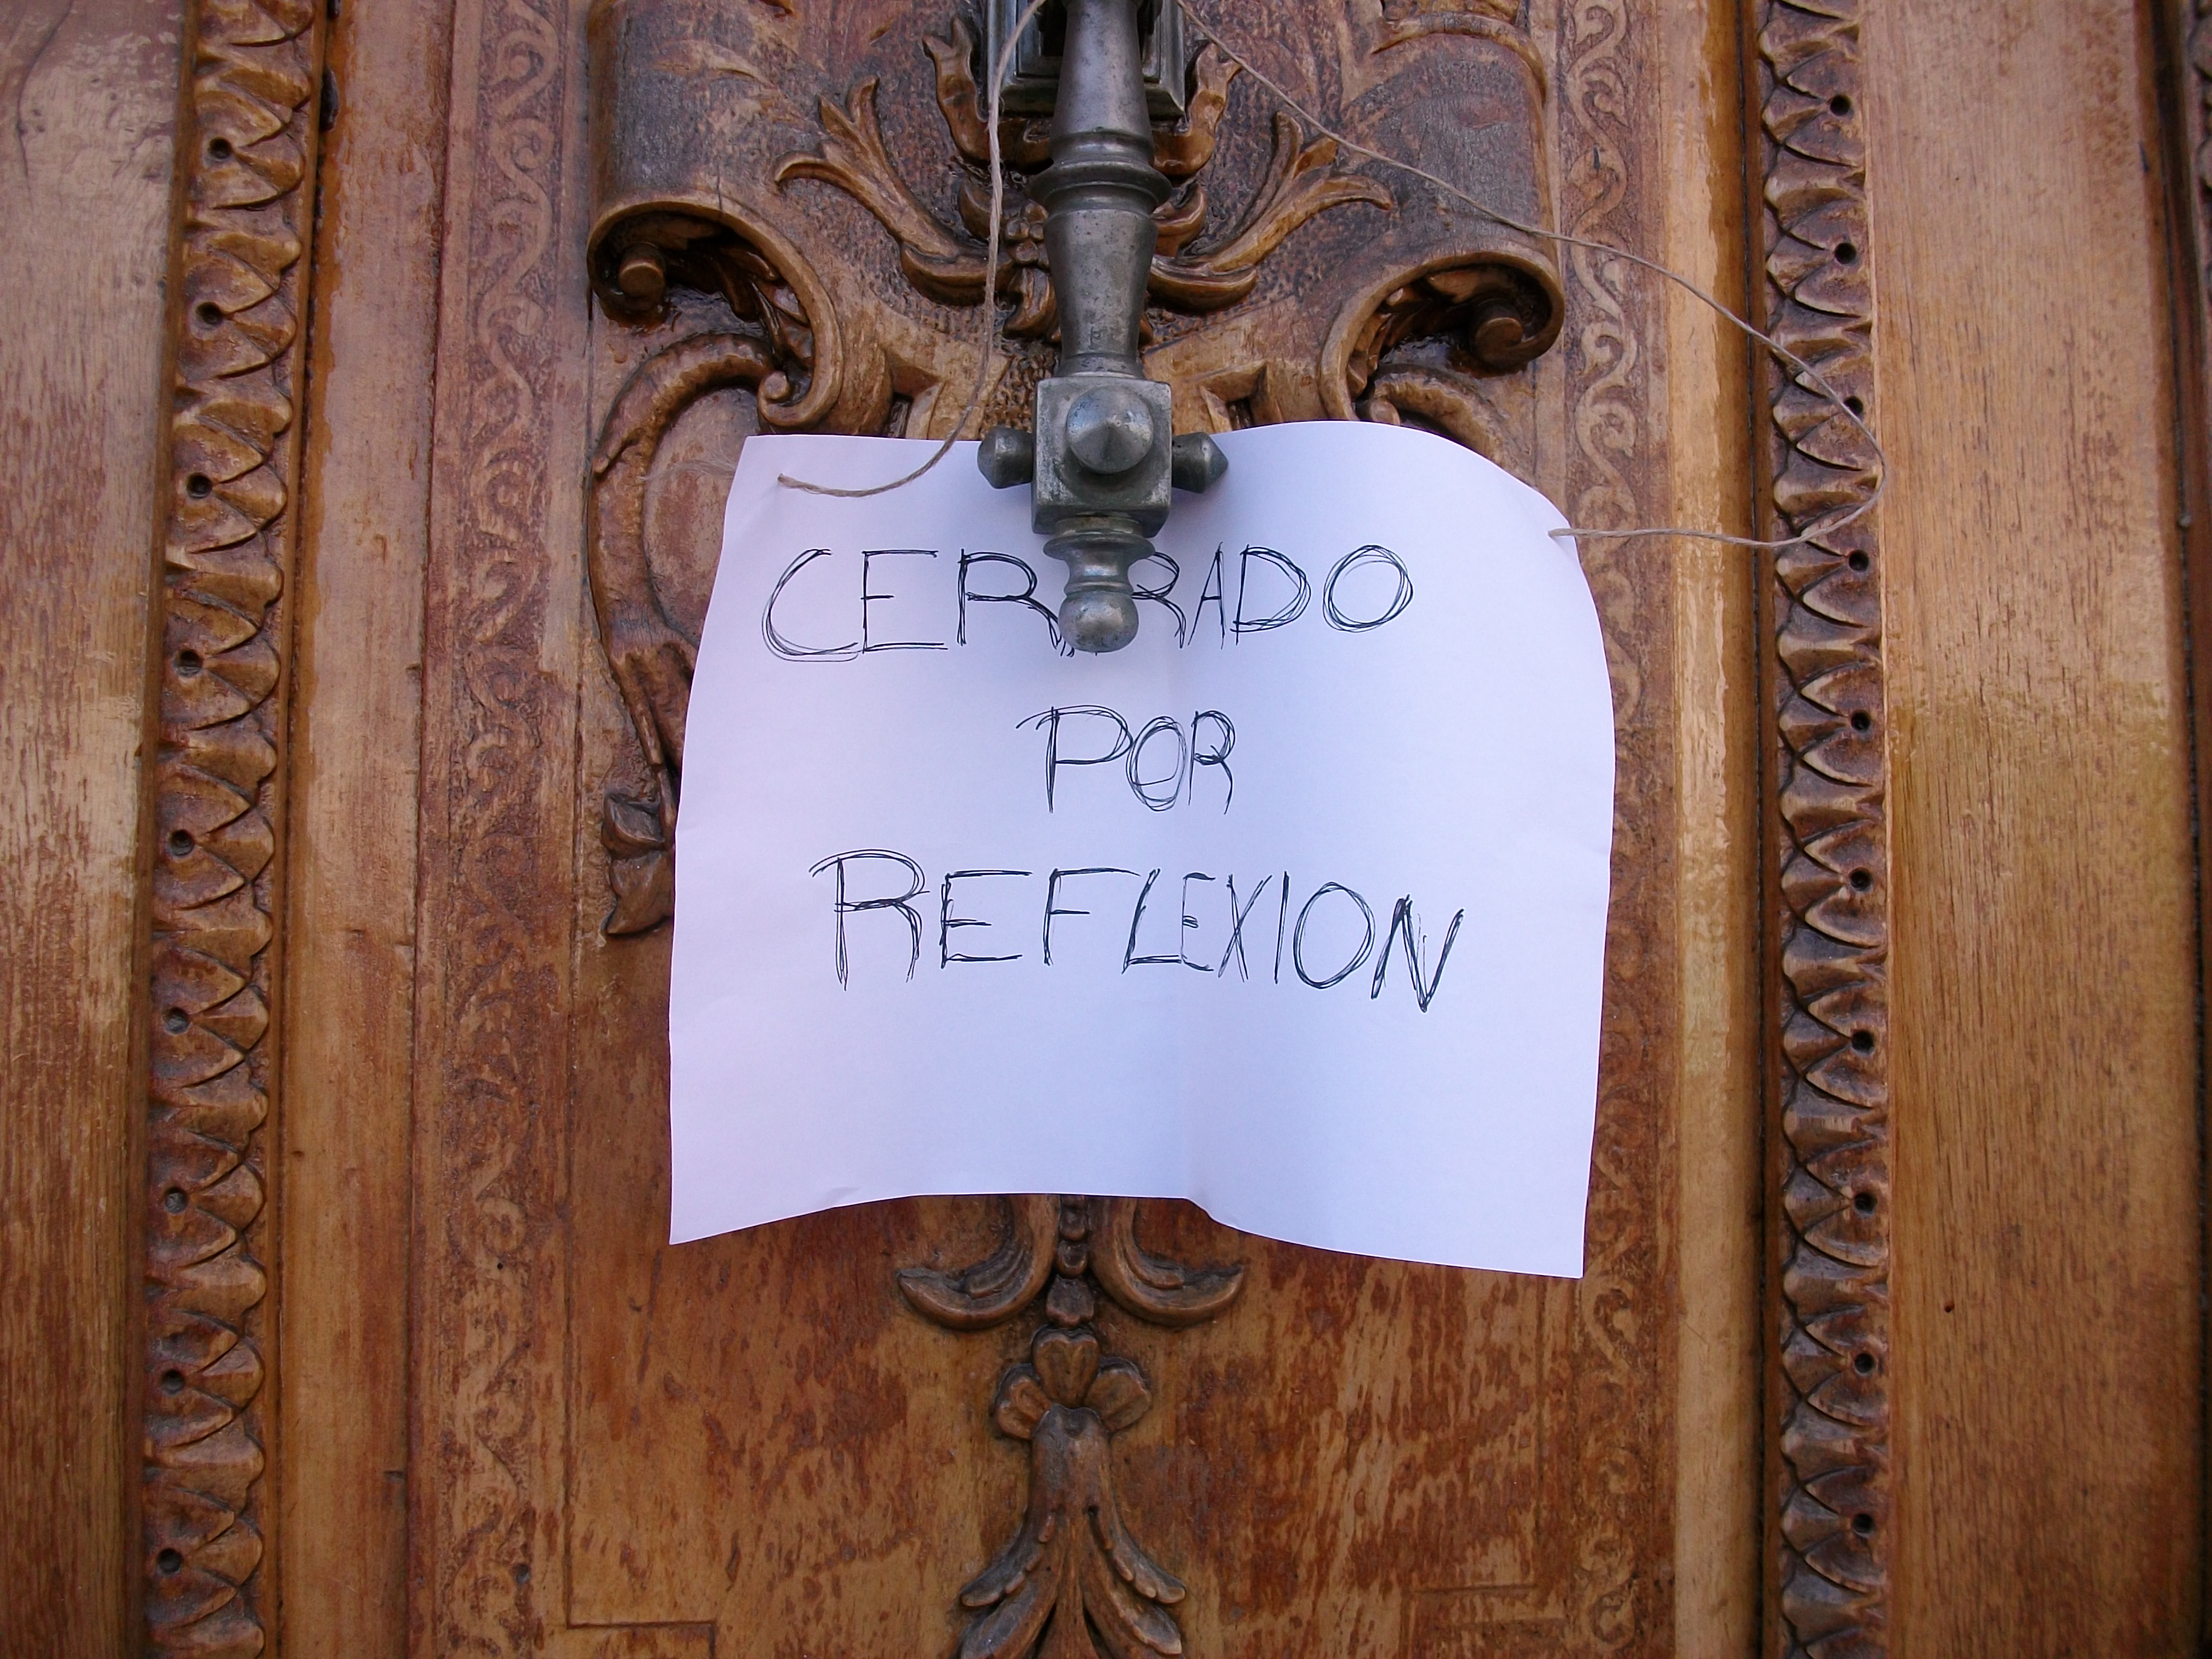 CERRADO
POR
REFLEXION